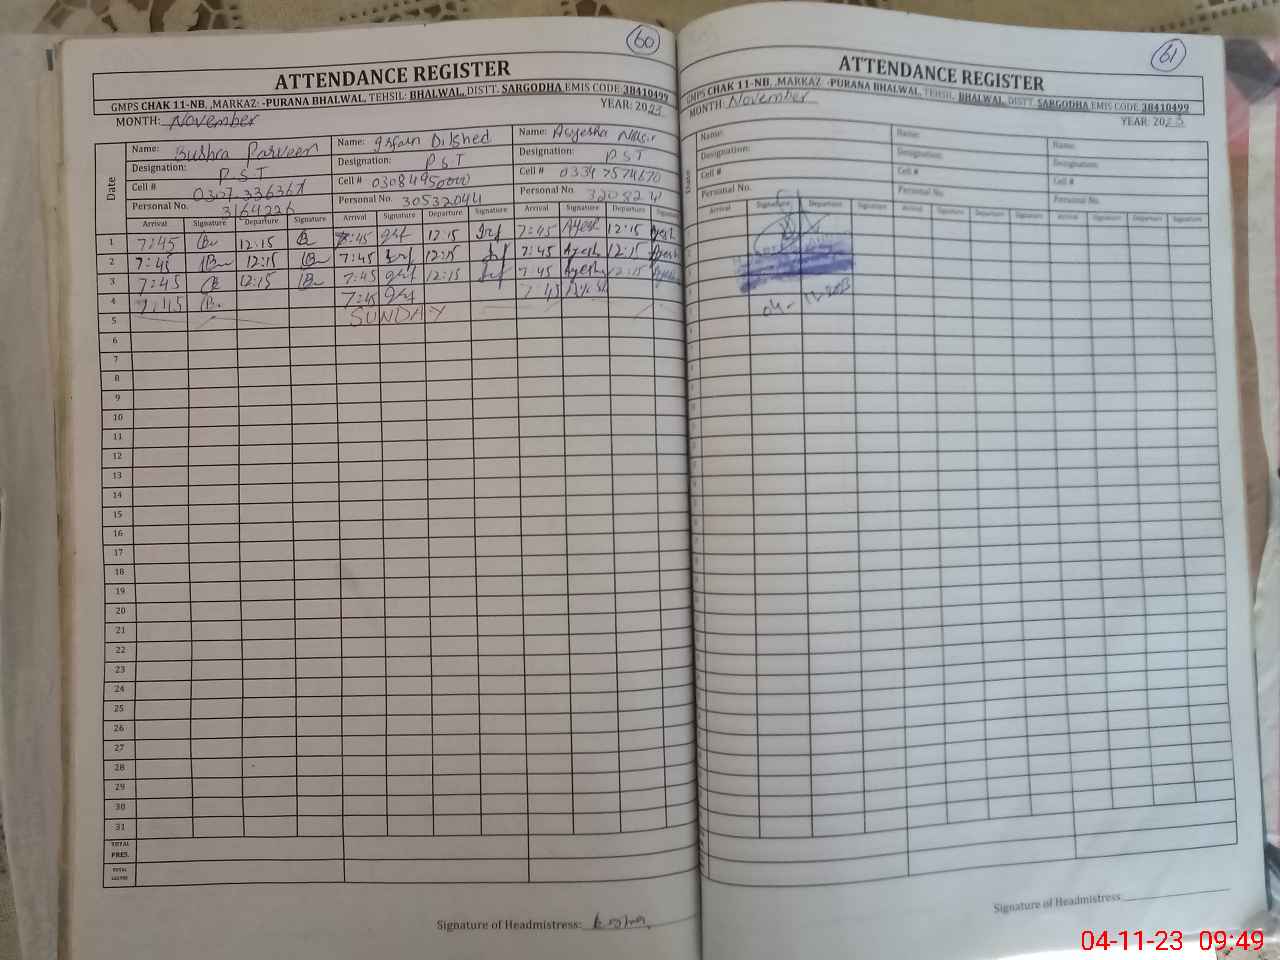 60
ATTENDANCE REGISTER
GMPS CHAK 11-NB, ,MARKAZ: -PURANA BHALWAL, TEHSIL: BHALWAL, DISTT. SARGODHA EMIS CODE 38410499
MONTH: November YEAR: 2023
Date
Name: Bushra Parveen Name: Irfan Dilshed Name: Ayesha Nasir
Designation: P S T Designation: P S T Designation: P S T
Cell # Cell # 03084950000 Cell # 03347574670
Personal No. 3164226 Personal No. 30532044 Personal No.
Arrival Signature Departure Signature Arrival Signature Departure Signature Arrival Signature Departure Signature
1 7:45 12:15 7:45 12:15 7:45 Ayesh 12:15 Ayesh
2 7:45 12:15 7:45 12:15 7:45 Ayesh 12:15 Ayesh
3 7:45 12:15 7:45 12:15 7:45 Ayesh 12:15 Ayesh
4 7:45 7:45 7:45 Ayesh
5 SUNDAY
6
7
8
9
10
11
12
13
14
15
16
17
18
19
20
21
22
23
24
25
26
27
28
29
30
31
TOTAL PRES.
TOTAL
Signature of Headmistress:
61
ATTENDANCE REGISTER
GMPS CHAK 11-NB, ,MARKAZ: -PURANA BHALWAL, TEHSIL: BHALWAL, DISTT. SARGODHA EMIS CODE 38410499
MONTH: November YEAR: 2023
Name: Name: Name:
Designation: Designation: Designation:
Cell # Cell # Cell #
Personal No. Personal No. Personal No.
Arrival Signature Departure Signature Arrival Signature Departure Signature Arrival Signature Departure Signature
04-11-2023
Signature of Headmistress:
04-11-23 09:49